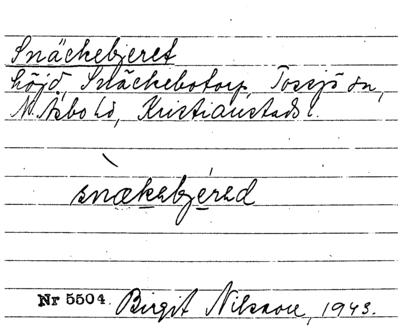 Snäckebjeret
höjd, Snäckebotorp, Tossjö sn,
N. Åsbo hd, Kristianstads l.
snækebjéred
Nr 5504. Birgit Nilsson, 1943.